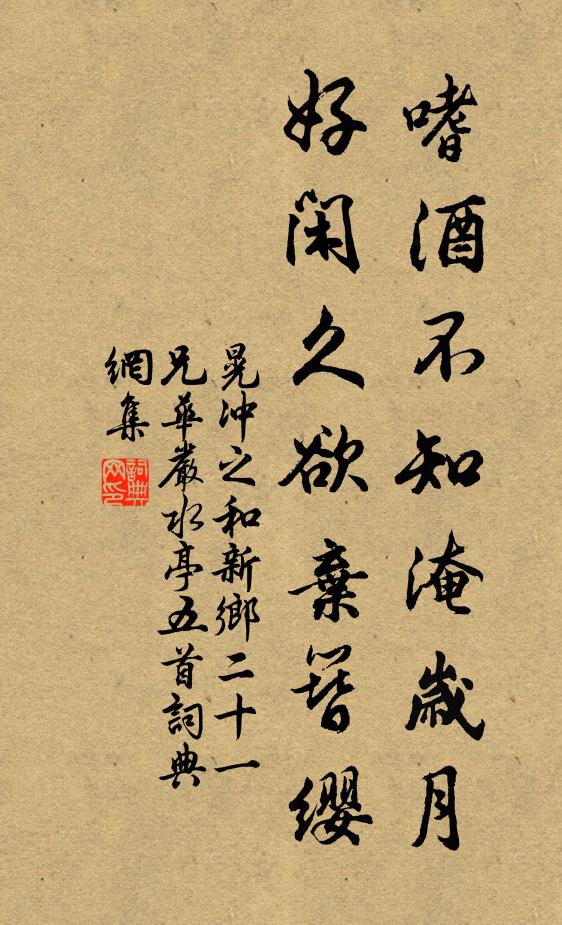 嗜酒不知淹歲月
好閑久欲棄簪纓
晃沖之和新鄉二十一
兄華嚴水亭五首詞典
網集
詞典網印